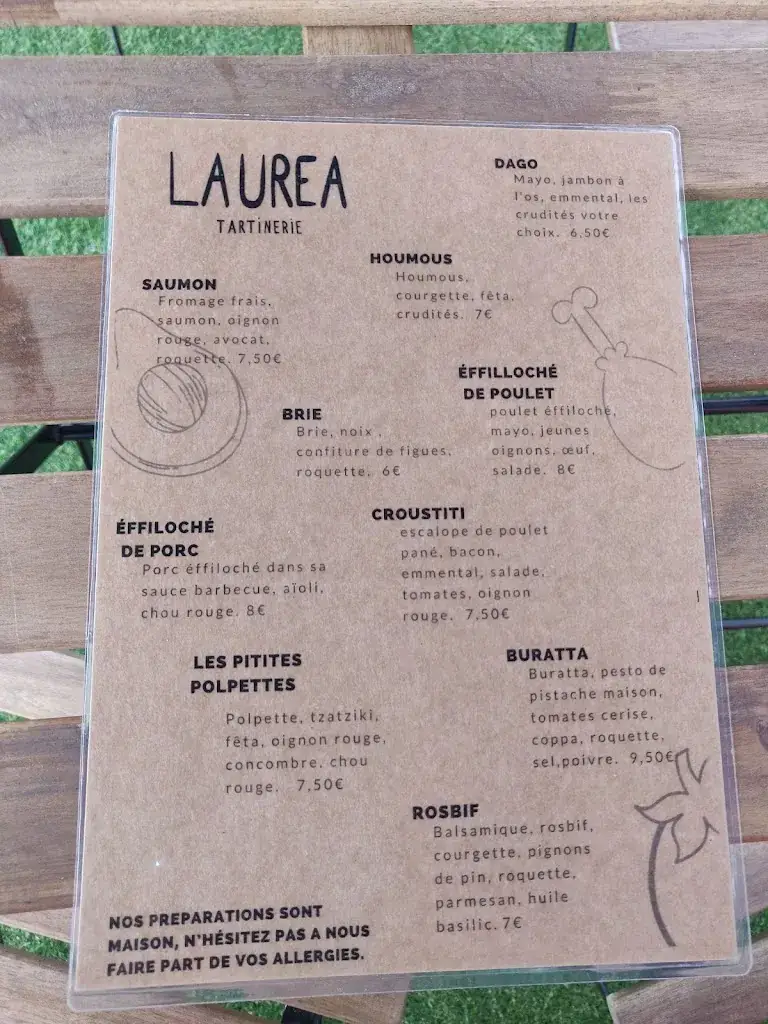 LAUREA
TARTINERIE
DAGO
Mayo, jambon à
l'os, emmental, les
crudités votre
choix. 6,50€
HOUMOUS
Houmous,
courgette, fêta,
crudités. 7€
SAUMON
Fromage frais,
saumon, oignon
rouge, avocat,
roquette. 7,50€
ÉFFILLOCHÉ
DE POULET
poulet éffiloché,
mayo, jeunes
oignons, œuf,
salade. 8€
BRIE
Brie, noix ,
confiture de figues,
roquette. 6€
CROUSTITI
escalope de poulet
pané, bacon,
emmental, salade,
tomates, oignon
rouge. 7,50€
ÉFFILOCHÉ
DE PORC
Porc éffiloché dans sa
sauce barbecue, aïoli,
chou rouge. 8€
LES PITITES
POLPETTES
Polpette, tzatziki,
fêta, oignon rouge,
concombre, chou
rouge. 7,50€
BURATTA
Buratta, pesto de
pistache maison,
tomates cerise,
coppa, roquette,
sel,poivre. 9,50€
ROSBIF
Balsamique, rosbif,
courgette, pignons
de pin, roquette,
parmesan, huile
basilic. 7€
NOS PREPARATIONS SONT
MAISON, N'HÉSITEZ PAS A NOUS
FAIRE PART DE VOS ALLERGIES.